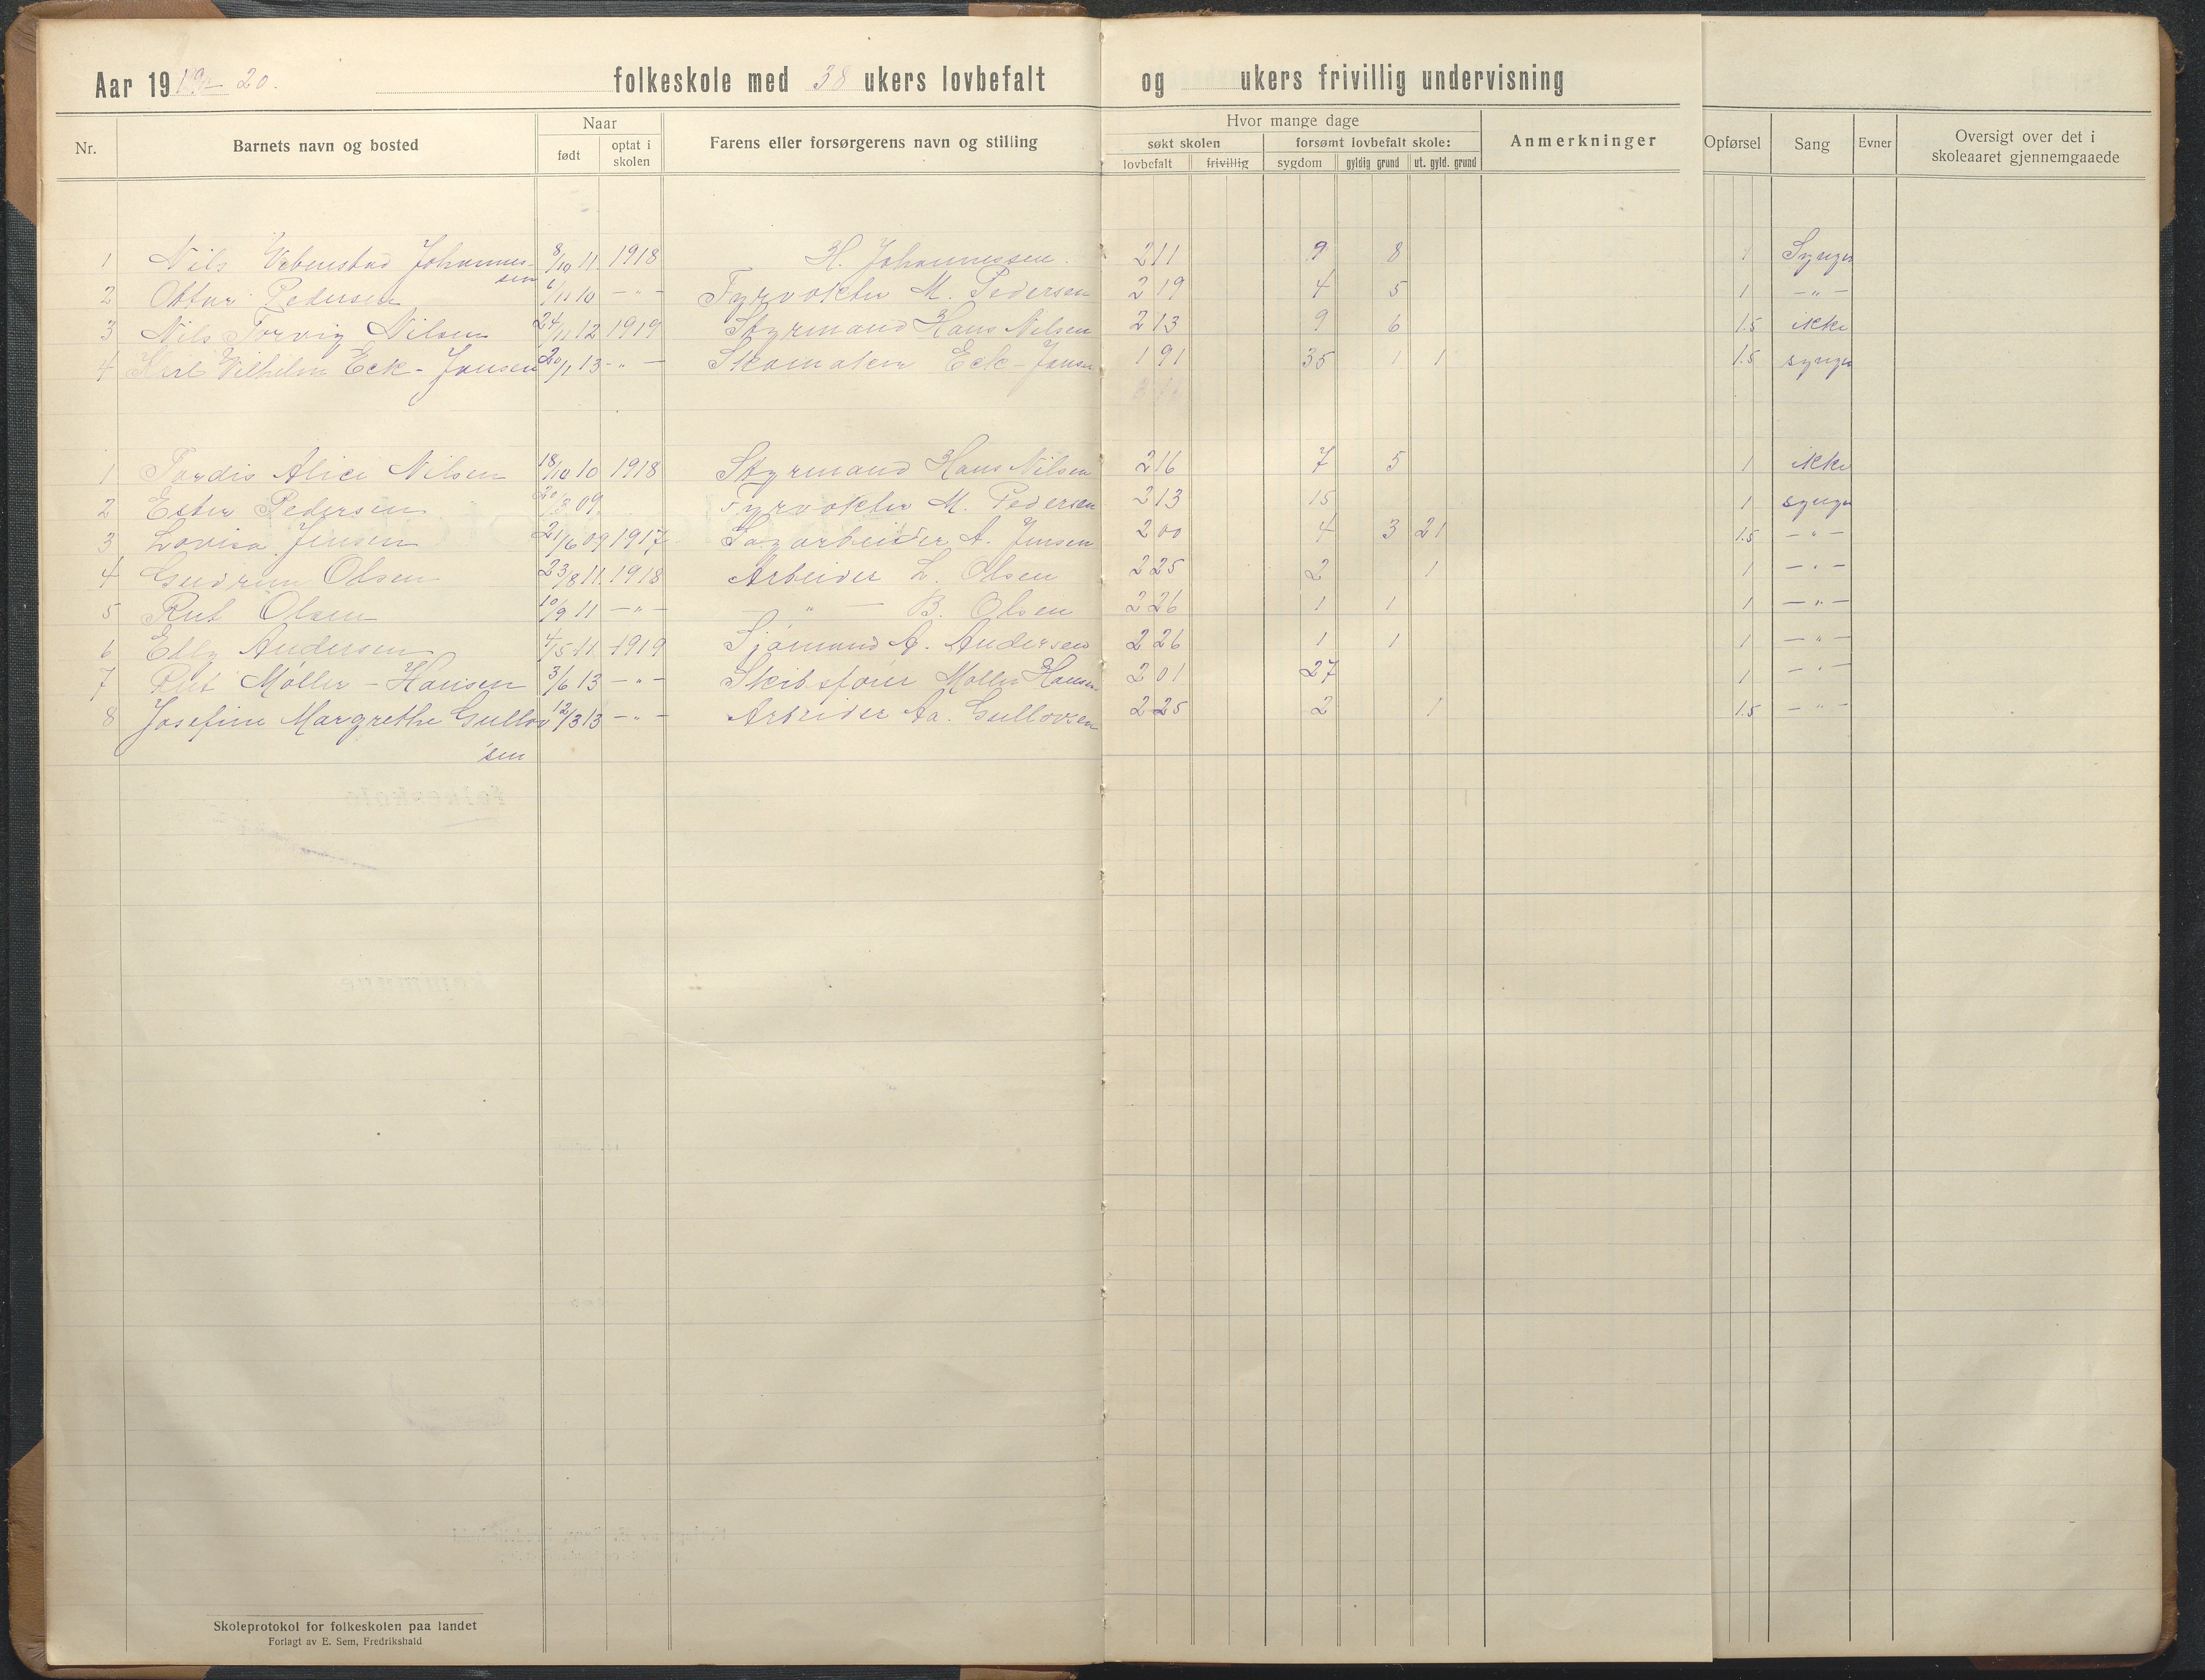 Aar 1919 – 20. folkeskole med 38 ukers lovbefalt og ukers frivillig undervisning
Nr. Barnets navn og bosted Naar født optat i skolen Farens eller forsørgerens navn og stilling Hvor mange dage søkt skolen lovbefalt frivillig forsømt lovbefalt skole: sygdom gyldig grund ut. gyld. grund Anmerkninger Opførsel Sang Evner Oversigt over det i skoleaaret gjennemgaaede
1 Nils Johannes- 8/10 11 1918 H. Johannessen. 211 9 8 1 Synger
sen
2 Ottar Pedersen 6/11 10 — " — Fyrvokter M. Pedersen 219 4 5 1 — " —
3 Nils Torvig Nilsen 24/11 12 1919 Styrmand Hans Nilsen 213 9 6 1.5 ikke
4 Karl Vilhelm Eck - Jansen 20/1 13 — " — Skomaker Eck - Jansen 191 35 1 1 1.5 synger
1 Tordis Alice Nilsen 18/10 10 1918 Styrmand Hans Nilsen 216 7 5 1 ikke
2 Ester Pedersen 20/3 09 Fyrvokter M. Pedersen 213 15 1 synger
3 Lovisa Jensen 21/6 09 1917 Sagarbeider A. Jensen 200 4 3 21 1.5 — " —
4 Gudrun Olsen 23/8 11. 1918 Arbeider L. Olsen 225 2 1 1 — " —
5 Rut Olsen 10/9 11 — " — — " — B. Olsen 226 1 1 1 — " —
6 Edly Andersen 4/5 11 1919 Sjømand A. Andersen 226 1 1 1 — " —
7 Rut Møller - Hansen 3/6 13 — " — Skibsfører Møller Hansen 201 27 1 — " —
8 Josefine Margrethe Gullov 12/3 13 — " — Arbeider Aa. Gullovsen 225 2 1 1.5 — " —
sen
Skoleprotokol for folkeskolen paa landet
Forlagt av E. Sem, Fredrikshald